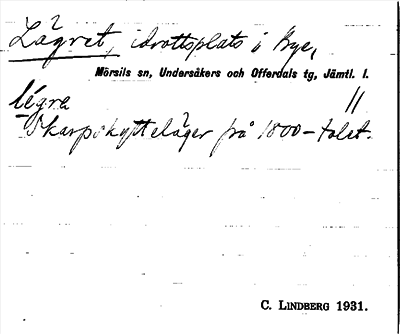 Lägret, idrottsplats i Bye,
Mörsils sn, Undersåkers och Offerdals tg, Jämtl. l.
légre //
Skarpskytteläger från 1800-talet.
C. LINDBERG 1931.